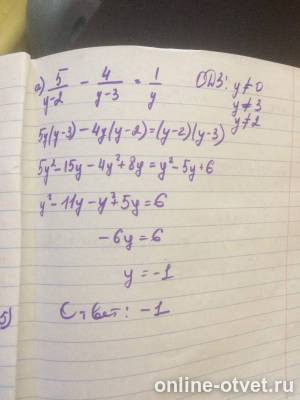 а) 5/(y-2) - 4/(y-3) = 1/y ОДЗ: y≠0
y≠3
y≠2
5y(y-3) - 4y(y-2) = (y-2)(y-3)
5y²-15y-4y²+8y = y²-5y+6
y²-11y-y²+5y=6
-6y=6
y=-1
Ответ: -1
б)
online-otvet.ru